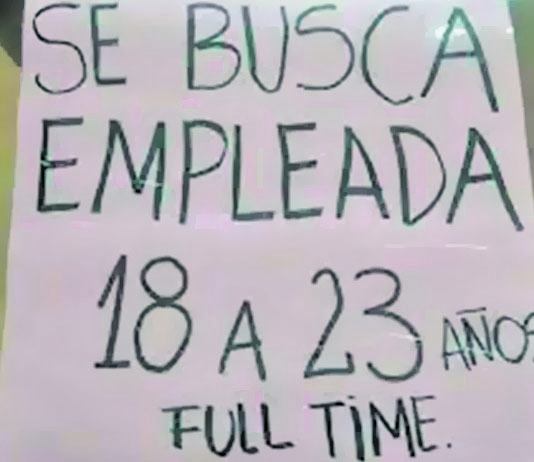 SE BUSCA
EMPLEADA
18 A 23 AÑOS
FULL TiME.